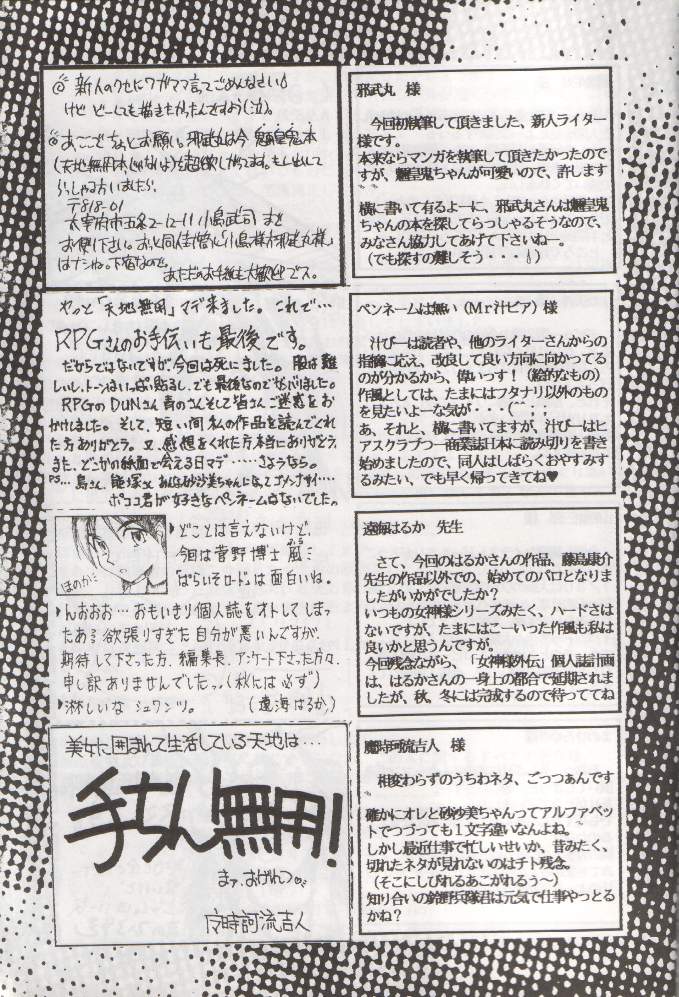 ◎新人のクセにワガママ言ってごめんなさい
けど どーしても描きたかったんですよう(泣)。
◎あとここでちょっとお願い。邪武丸は今 魎皇鬼本
(天地無用本じゃないよ)を超欲しがってます。もし出して
らっしゃる方いましたら
〒818-01
太宰府市五条2-12-11 小島武司 まで
お便り下さい。
あただのお手紙も大歓迎でス。
邪武丸 様
今回初執筆して頂きました、新人ライター
様です。
本来ならマンガを執筆して頂きたかったのです
が、魎皇鬼ちゃんが可愛いので、許します
横に書いて有るよーに、邪武丸さんは魎皇鬼
ちゃんの本を探してらっしゃるそうなので、
みなさん協力してあげて下さいねー。
(でも探すの難しそう・・・)
やっと「天地無用」マデ来ました。これで…
RPGさんのお手伝いも最後です。
だからではないですが、今回は死にました。服は難
しいし、トーンはいっぱい貼るし、でも最後なのでがんばりました。
RPGのDUNさん 青のさんそして皆さんご迷惑をお
かけしました。そして、短い間私の作品を読んでくれ
た方ありがとう。又、感想をくれた方本当にありがとう。
また、どこかの紙面で会える日マデ……さようなら。
ポコ君が好きなペンネームはないでした。
ペンネームは無い(Mr汁ビア)様
汁びーは読者や、他のライターさんからの
指摘に応え、改良して良い方向に向かってる
のが分かるから、偉いっす!(絵的なもの)
作風としては、たまにはフタナリ以外のもの
を見たいよーな気が・・・(^;;
あ、それと、横に書いてますが、汁びーはヒ
アスクラブつー商業誌日本に読み切りを書き
始めましたので、同人はしばらくおやすみす
るみたい、でも早く帰ってきてね♥
ほのか…
どことは言えないけど、
今回は菅野博士 風ミ
「ぱらいそロード」は面白いね。
んおおお… おもいきり個人誌をオトしてしまっ
たある 欲張りすぎた自分が悪いんですが、
期待して下さった方、編集長、アンケート下さった方々、
申し訳ありませんでしたっ。(秋には必ず)
淋しいな シュワンツ。 (遠海はるか)
遠海はるか 先生
さて、今回のはるかさんの作品、藤島康介
先生の作品以外での、始めてのパロとなりま
したがいかがでしたか?
いつもの女神様シリーズみたく、ハードさは
ないですが、たまにはこーいった作風も私は
良いかと思うんですが。
今回残念ながら、「女神様外伝」個人誌計画
は、はるかさんの一身上の都合で延期されま
したが、秋、冬には完成するので待っててね
美女に囲まれて生活している天地は…
手ちん無用!
まァ、おげれつ
魔時河流吉人 様
相変わらずのうちわネタ、ごっつぁんです
確かにオレと砂沙美ちゃんってアルファベッ
トでつづっても1文字違いなんよね。
しかし最近仕事で忙しいせいか、昔みたく、
切れたネタが見れないのはチト残念。
(そこにしびれるあこがれるぅ〜)
知り合いの鈴野兵隊君は元気で仕事やっとる
かね?